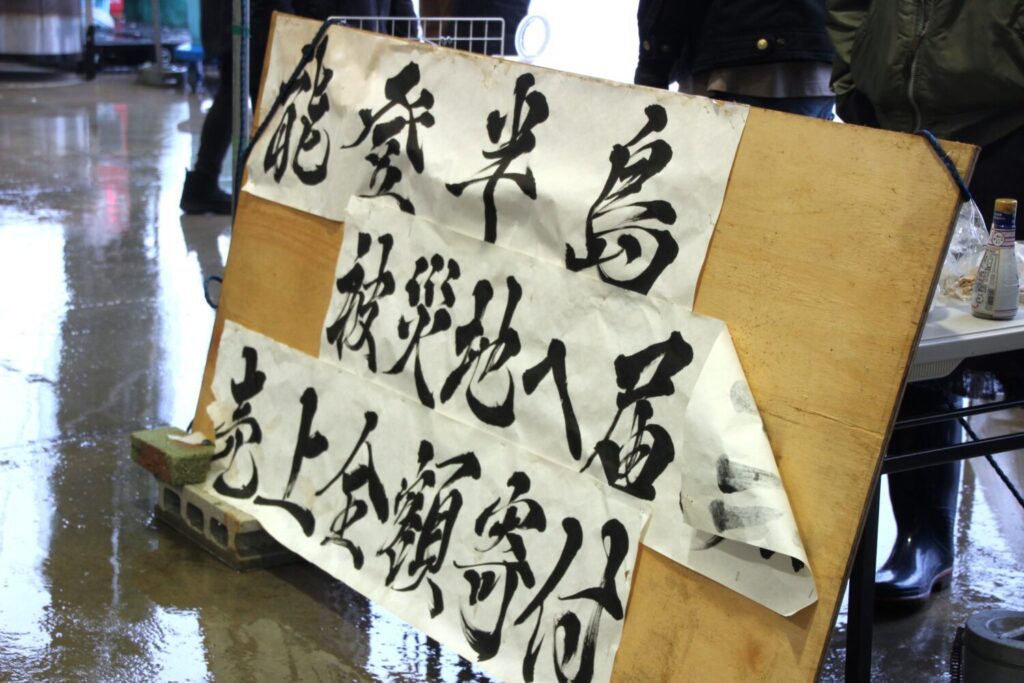 能登半島
被災地へ届
売上全額寄付